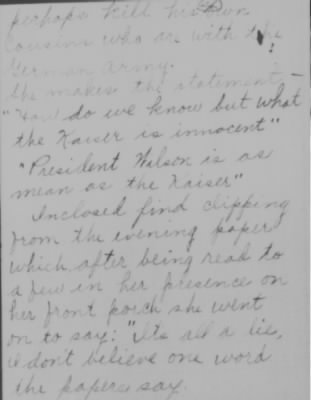 perhaps kill his own
cousins who are with the
German Army.
She makes the statement –
"How do we know but what
the Kaiser is innocent"
"President Wilson is as
mean as the Kaiser"
Inclosed find clipping
from the evening paper
which after being read to
a few in her presence on
her front porch she went
on to say: "Its all a lie,
I don't believe one word
the papers say.